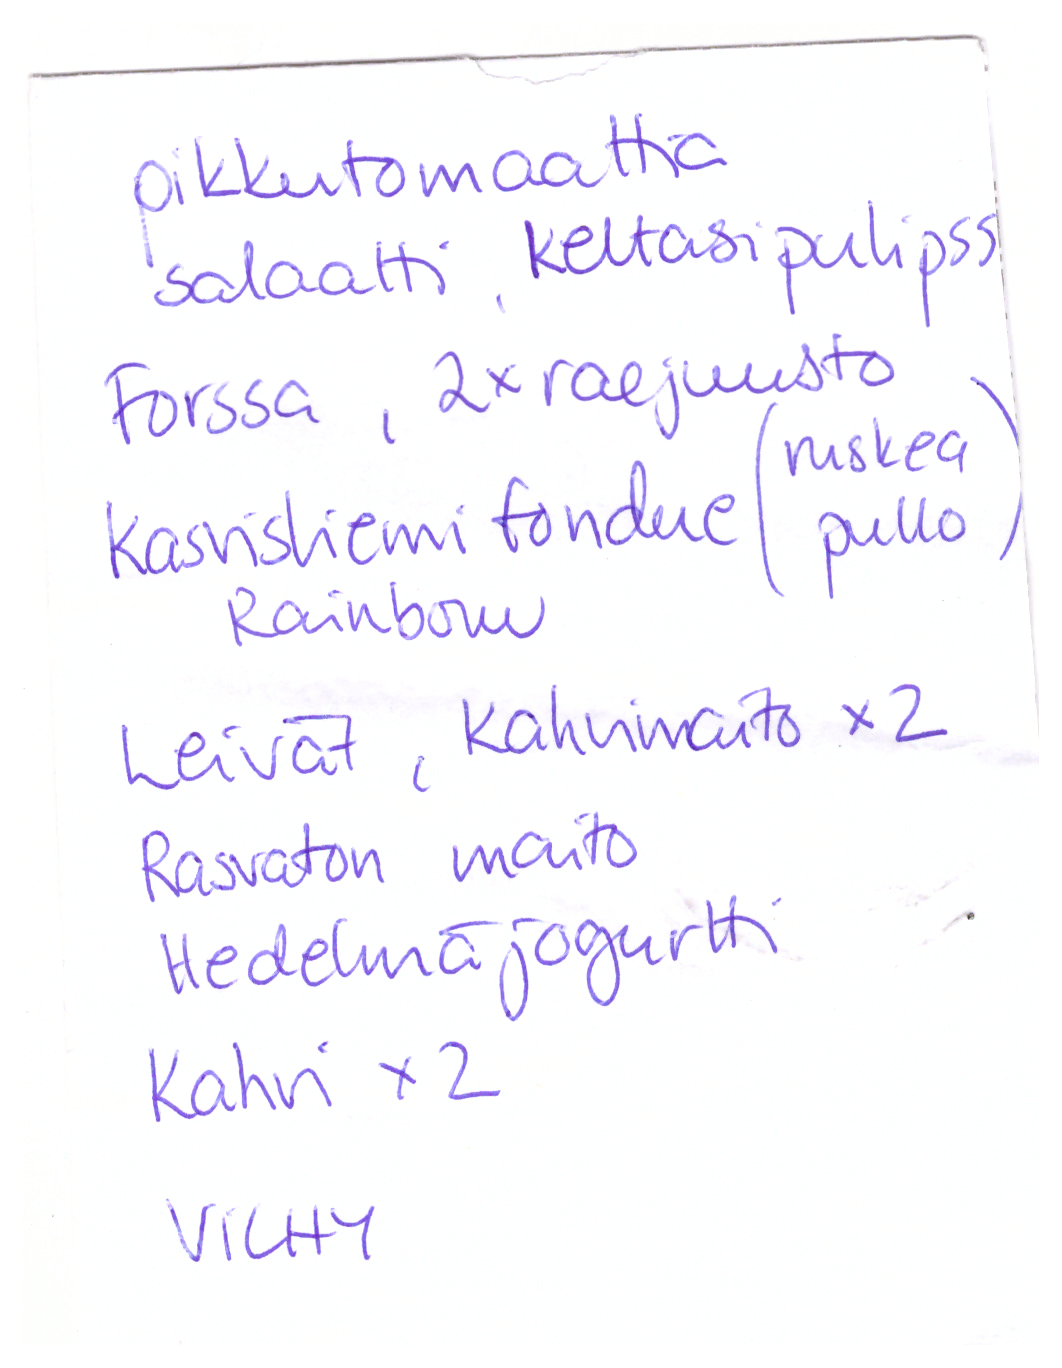 pikkutomaattia
salaatti, keltasipulipss
Forssa, 2x raejuusto
Kasvisliemi fondue (ruskea pullo)
Rainbow
Leivät, Kahvimaito x2
Rasvaton maito
Hedelmäjogurtti
Kahvi x2
VICHY